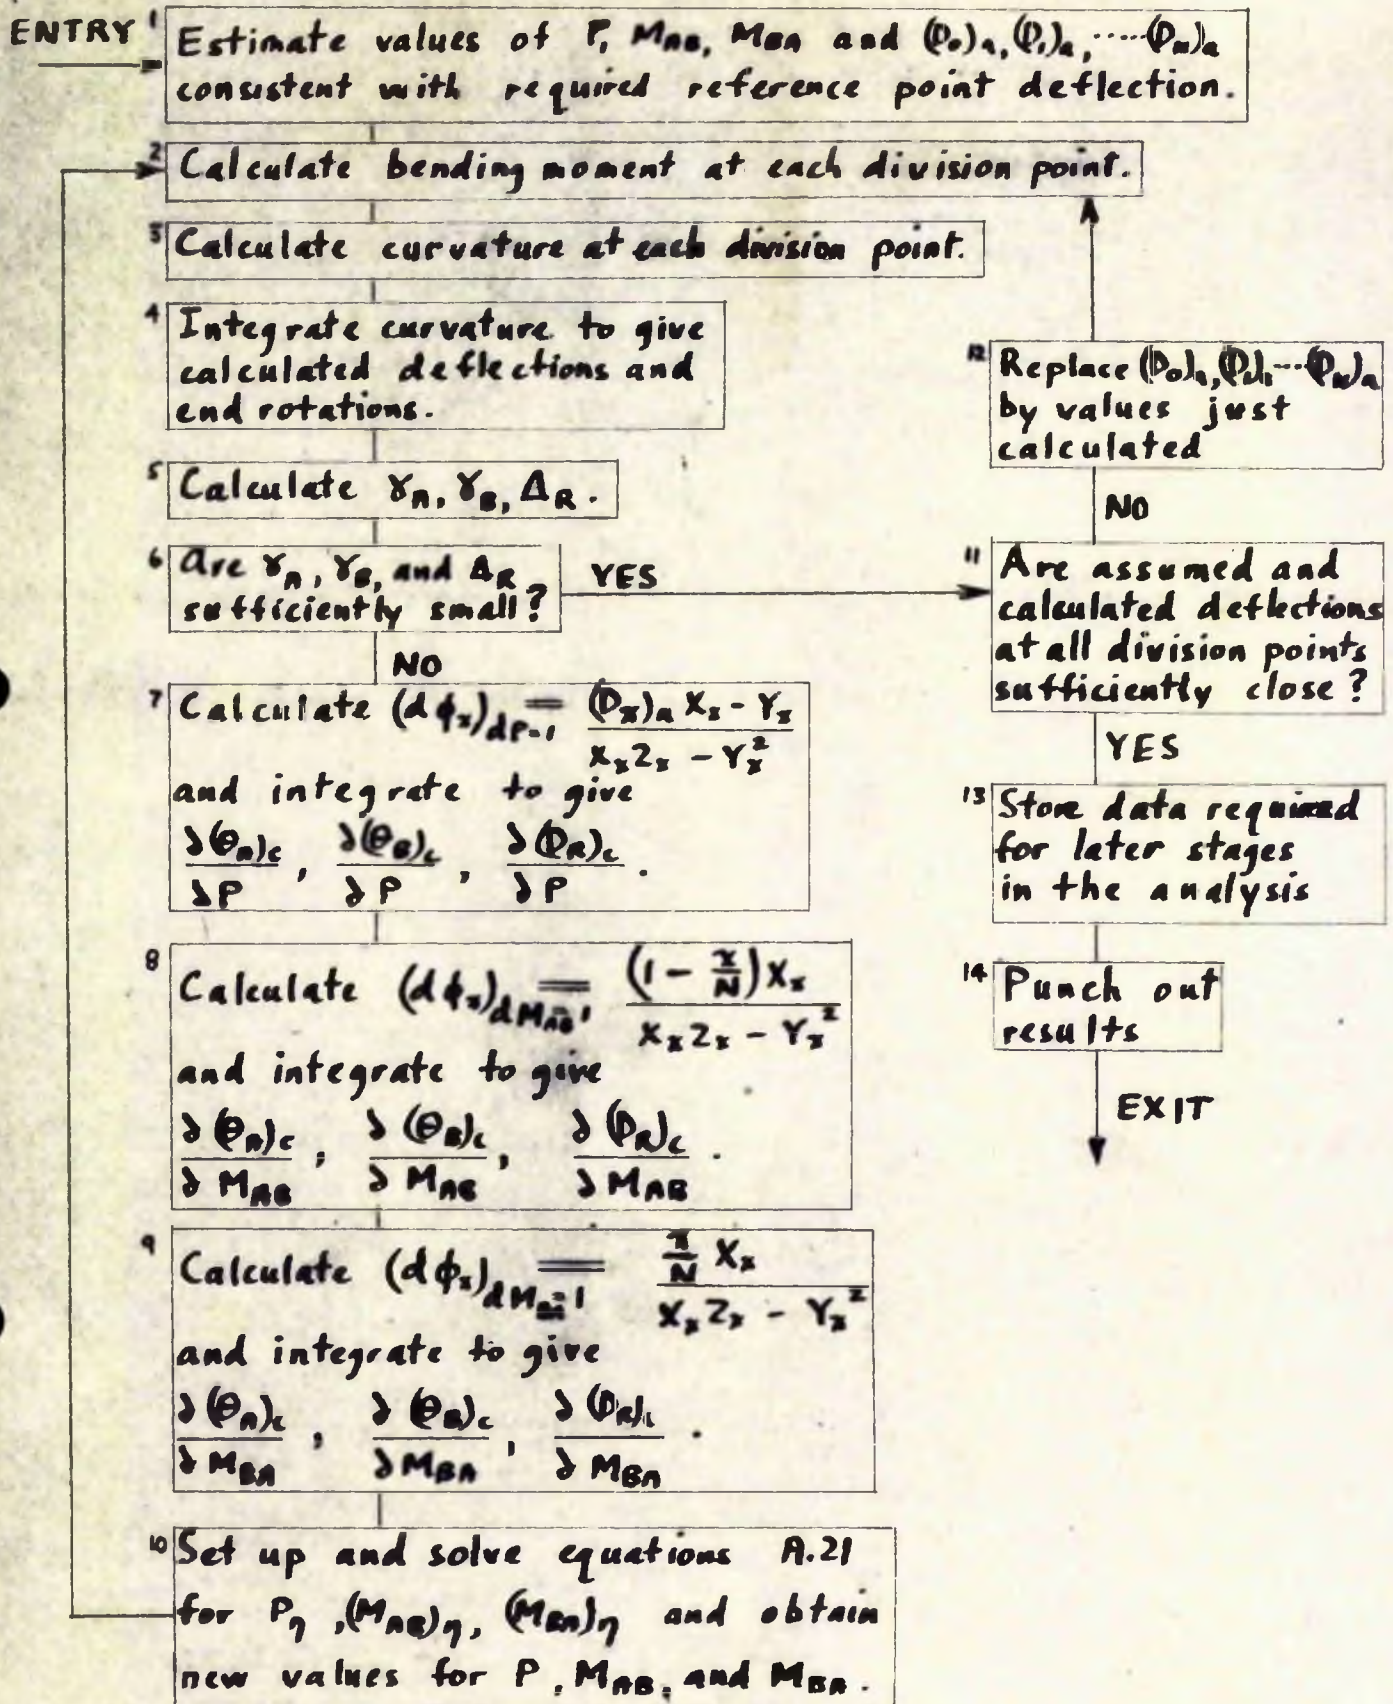 ENTRY
1
Estimate values of P, M_AB, M_BA and (D_0)_a, (D_1)_a, ····· (D_N)_a
consistent with required reference point deflection.
2
Calculate bending moment at each division point.
3
Calculate curvature at each division point.
4
Integrate curvature to give
calculated deflections and
end rotations.
5
Calculate γ_A, γ_B, Δ_R.
6
Are γ_A, γ_B, and Δ_R
sufficiently small?
YES
NO
7
Calculate (dϕ_x)_dP=1 = ((D_x)_a X_x - Y_x) / (X_x Z_x - Y_x^2)
and integrate to give
∂(θ_A)_c/∂P, ∂(θ_B)_c/∂P, ∂(D_R)_c/∂P.
8
Calculate (dϕ_x)_dM_AB=1 = ((1 - x/N) X_x) / (X_x Z_x - Y_x^2)
and integrate to give
∂(θ_A)_c/∂M_AB, ∂(θ_B)_c/∂M_AB, ∂(D_R)_c/∂M_AB.
9
Calculate (dϕ_x)_dM_BA=1 = (x/N X_x) / (X_x Z_x - Y_x^2)
and integrate to give
∂(θ_A)_c/∂M_BA, ∂(θ_B)_c/∂M_BA, ∂(D_R)_c/∂M_BA.
10
Set up and solve equations A.21
for P_η, (M_AB)_η, (M_BA)_η and obtain
new values for P, M_AB, and M_BA.
11
Are assumed and
calculated deflections
at all division points
sufficiently close?
NO
12
Replace (D_0)_a, (D_1)_a ··· (D_N)_a
by values just
calculated
YES
13
Store data required
for later stages
in the analysis
14
Punch out
results
EXIT